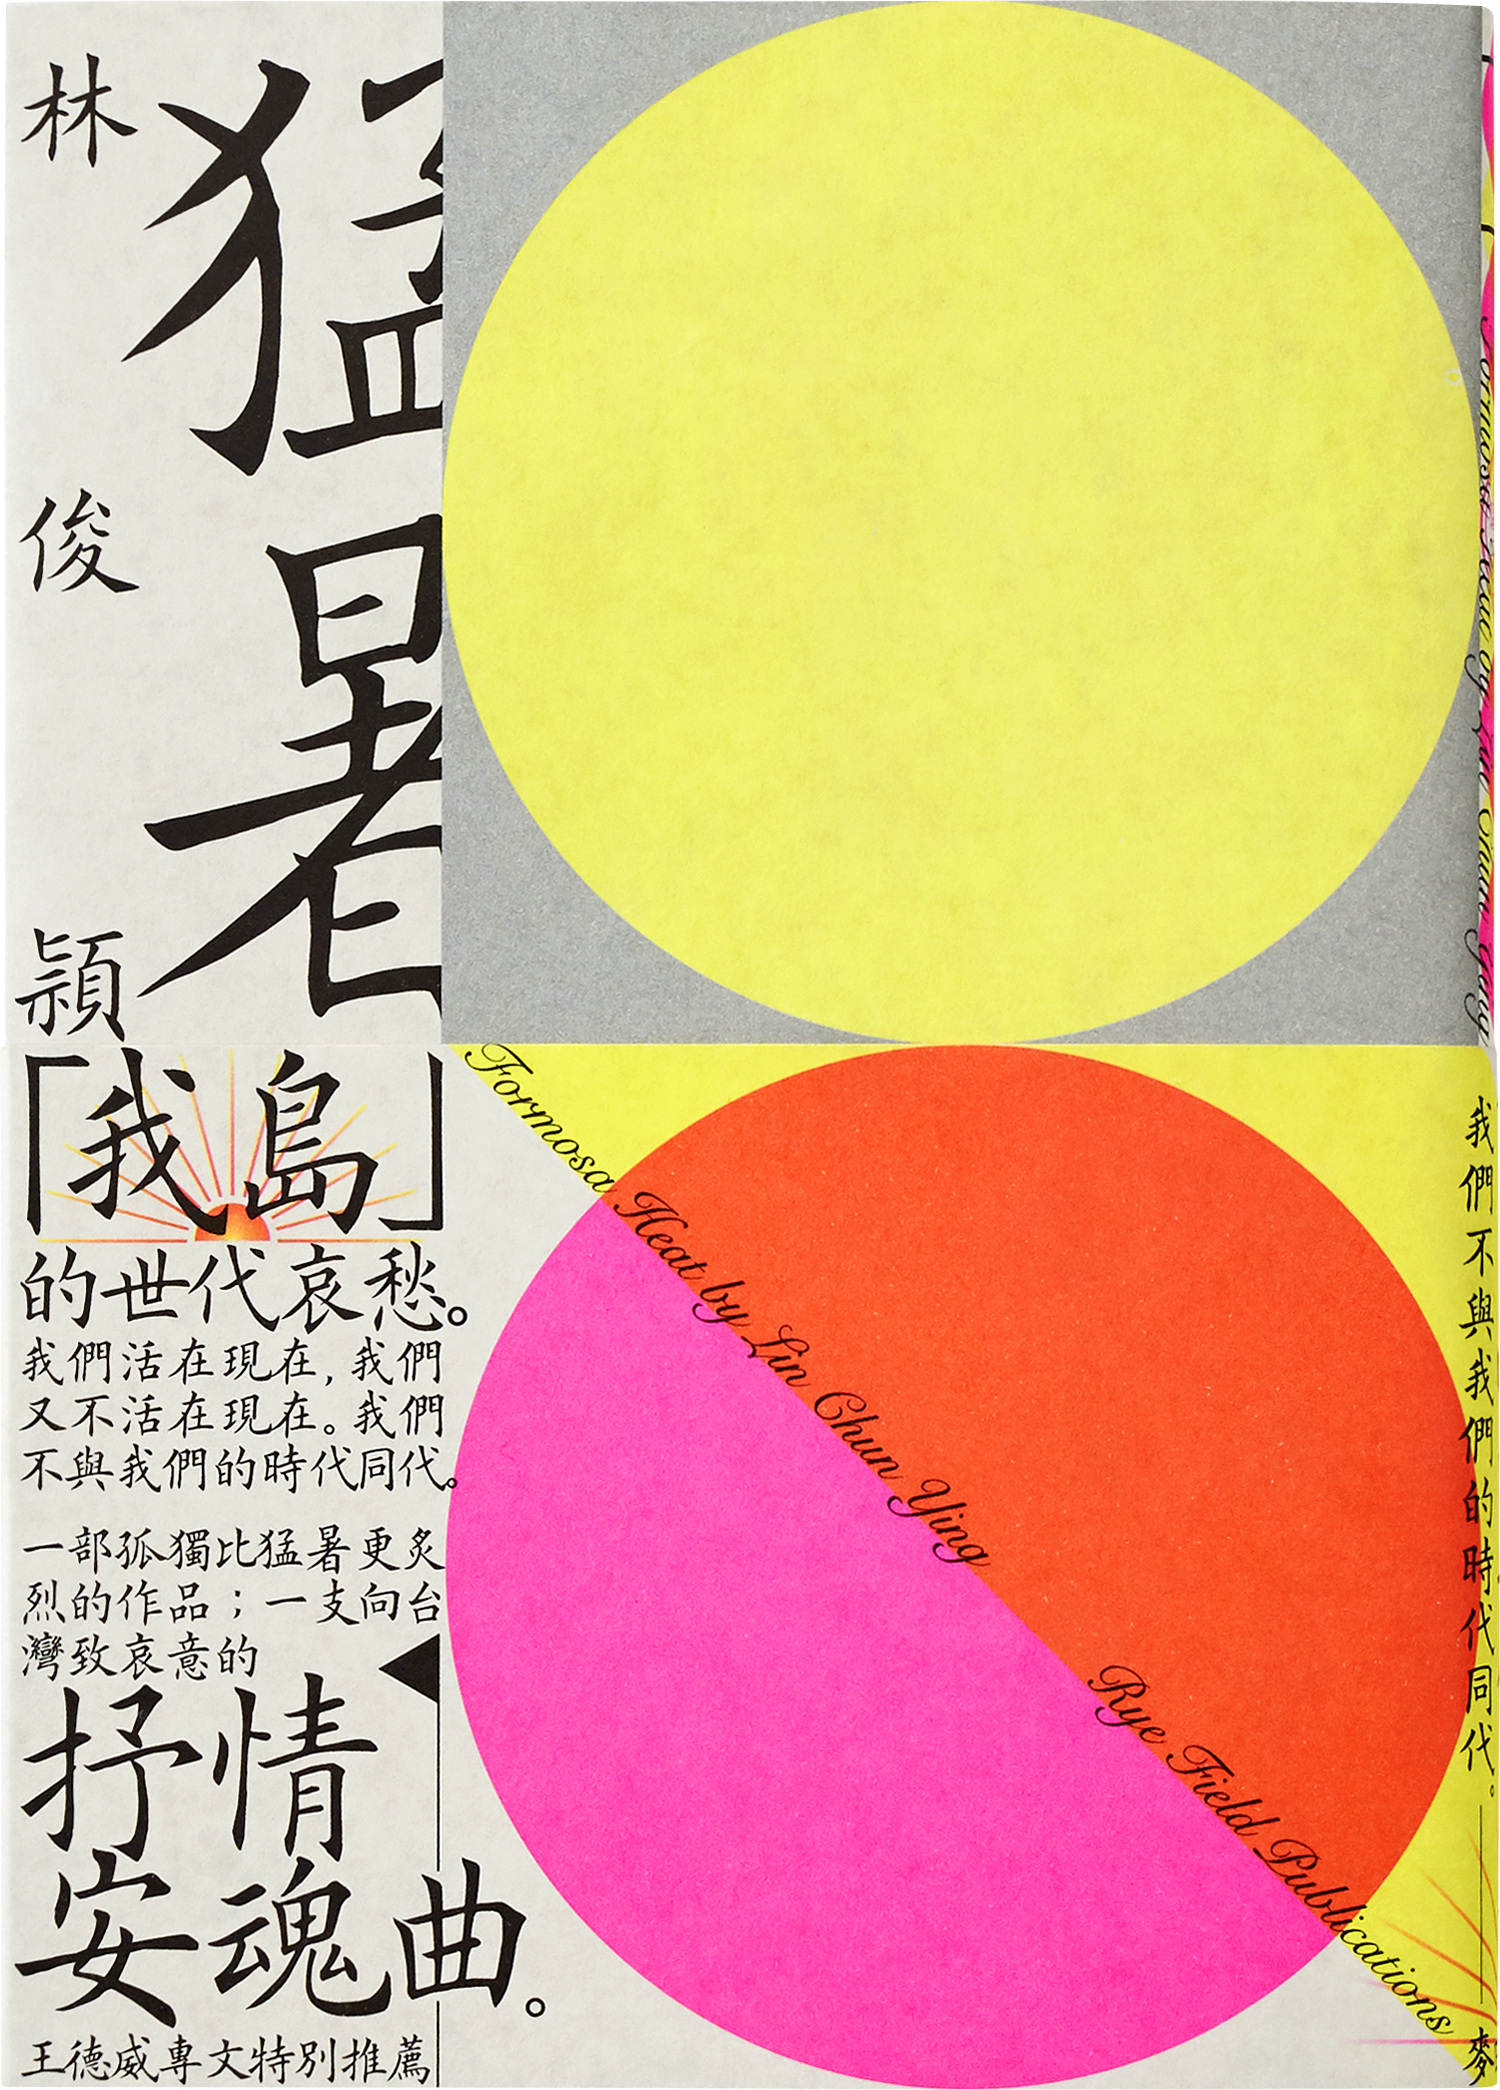 猛暑
林俊頴
「我島」
的世代哀愁。
我們活在現在,我們
又不活在現在。我們
不與我們的時代同代。
一部孤獨比猛暑更炙
烈的作品;一支向台
灣致哀意的
抒情
安魂曲。
王德威專文特別推薦
Formosa Heat by Lin Chun Ying
Rye Field Publications
我們不與我們的時代同代。——麥
Formosa Heat by Lin Chun Ying